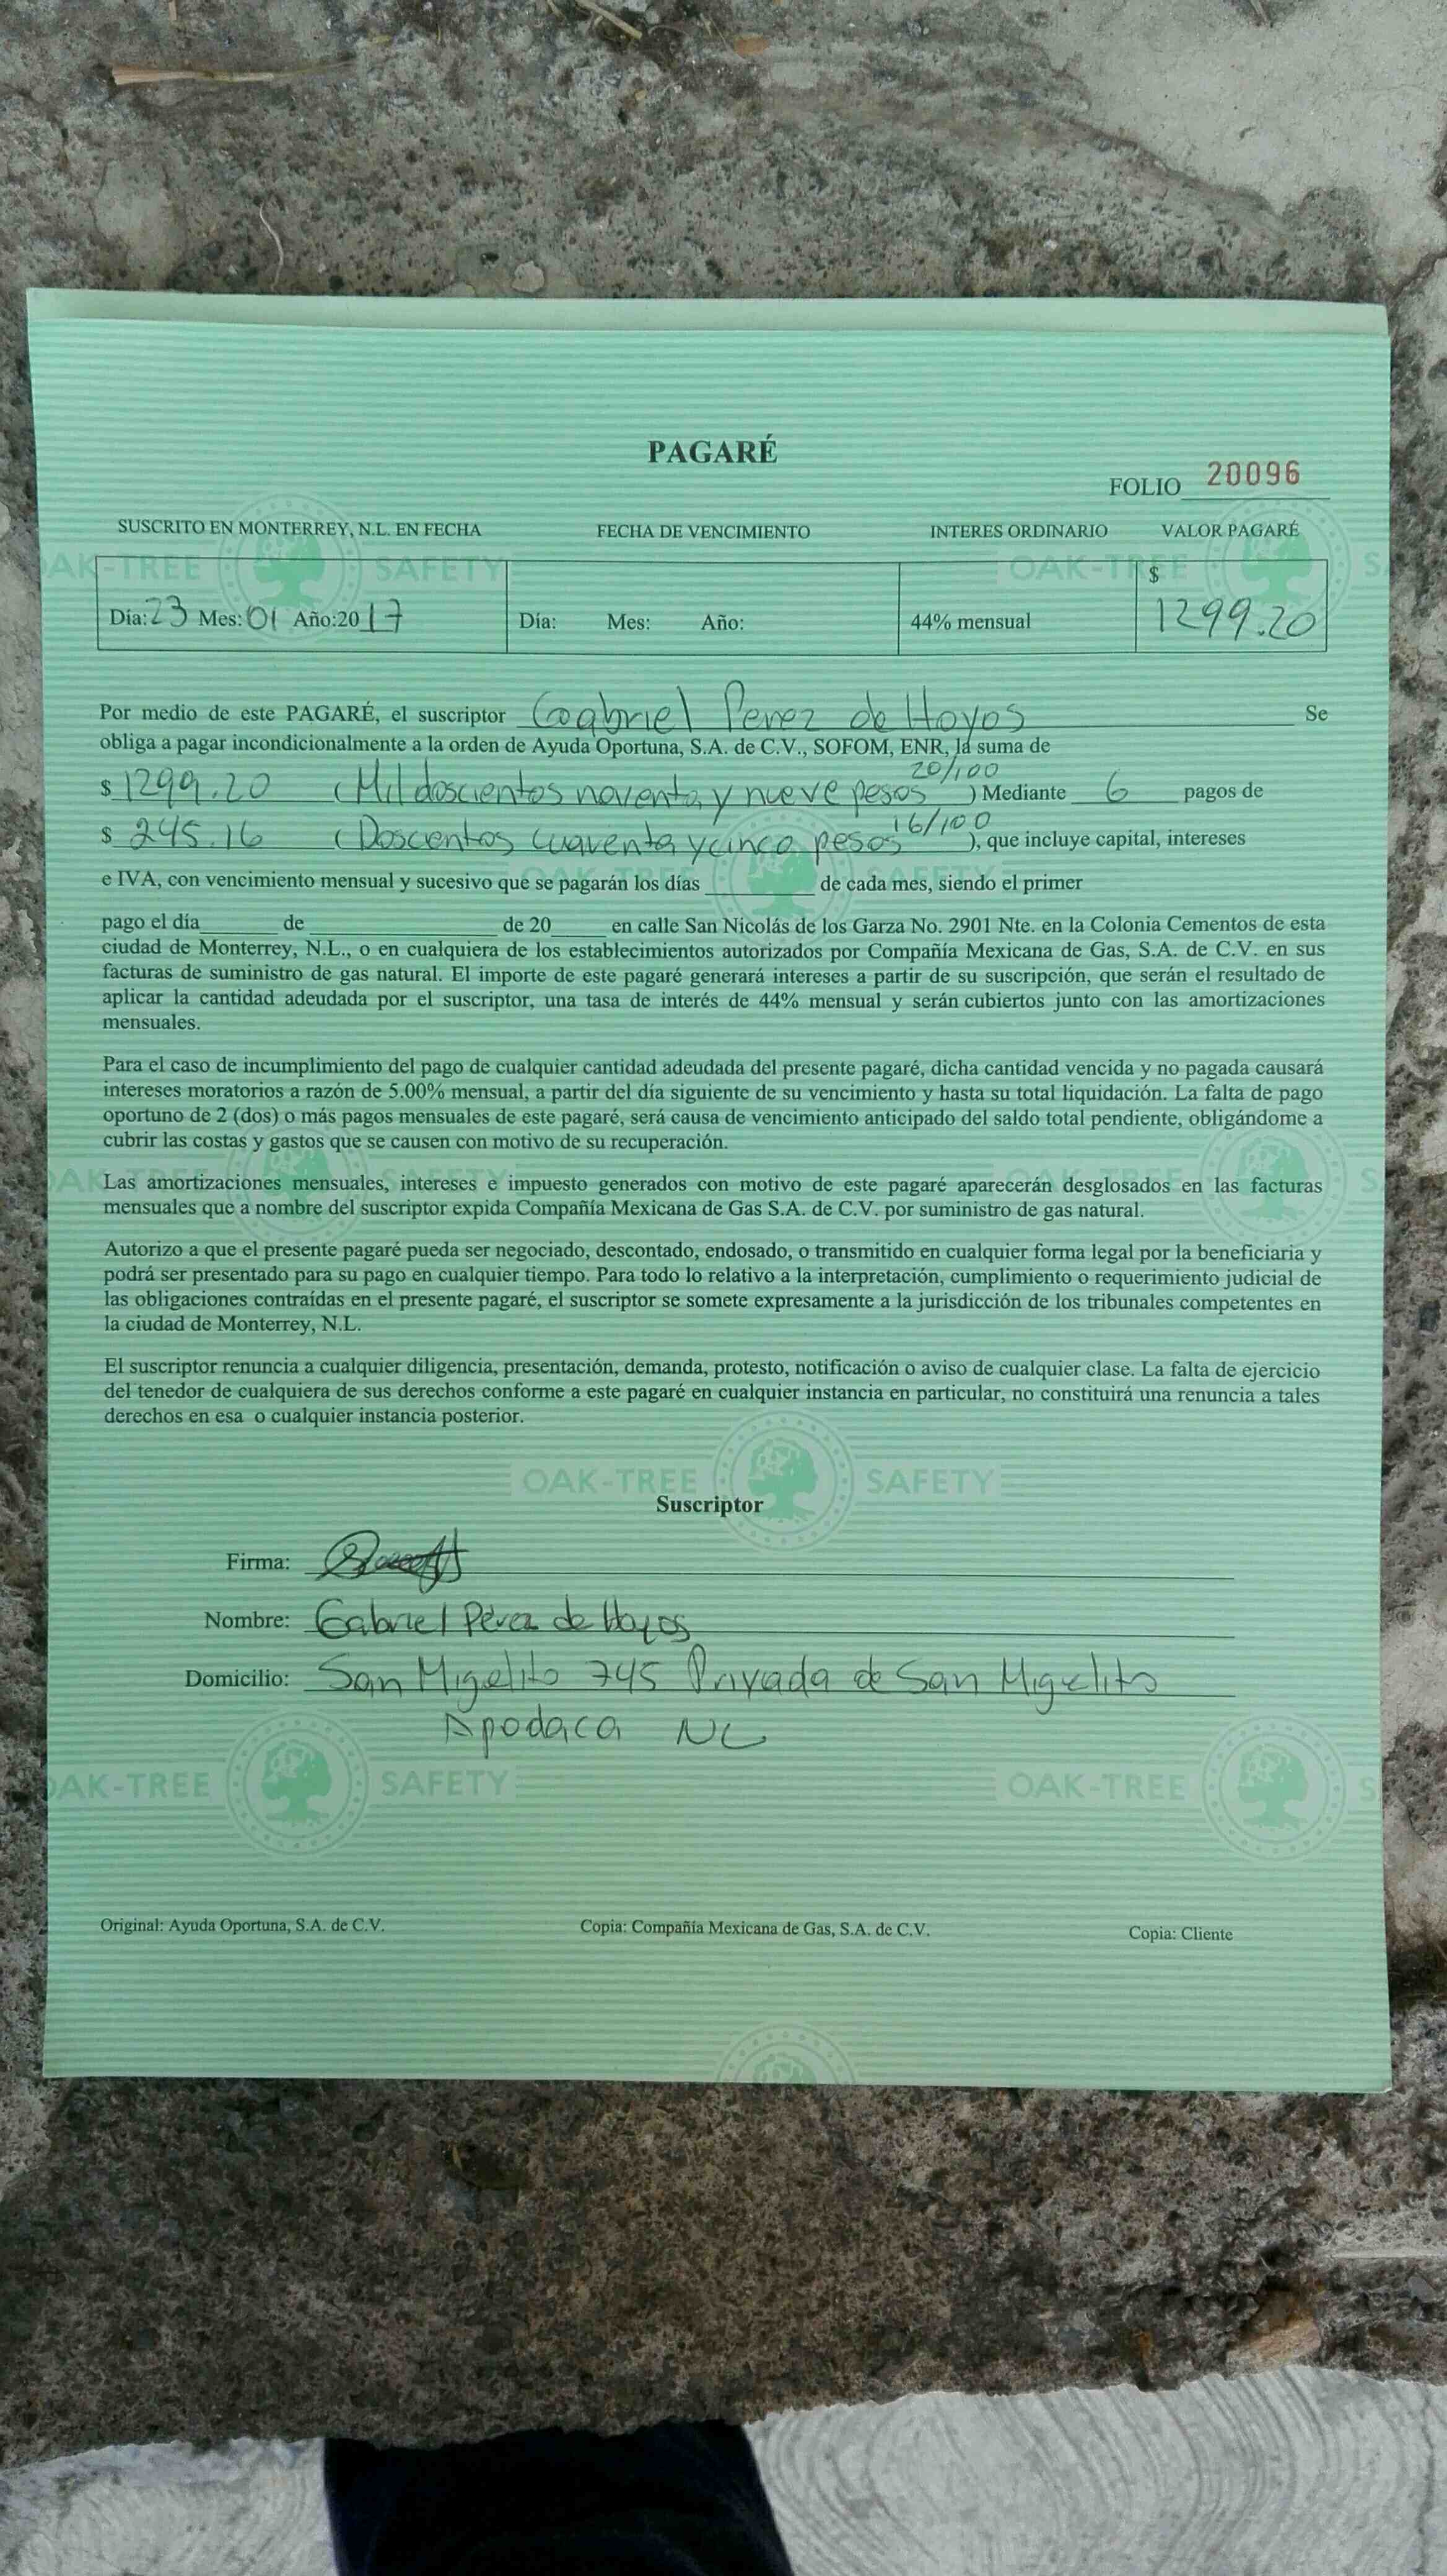 PAGARÉ
FOLIO 20096
SUSCRITO EN MONTERREY, N.L. EN FECHA FECHA DE VENCIMIENTO INTERES ORDINARIO VALOR PAGARÉ
Día: 23 Mes: 01 Año:2017 Día: Mes: Año: 44% mensual $ 1299.20
Por medio de este PAGARÉ, el suscriptor Gabriel Perez de Hoyos Se
obliga a pagar incondicionalmente a la orden de Ayuda Oportuna, S.A. de C.V., SOFOM, ENR, la suma de
$ 1299.20 (Mil doscientos noventa y nueve pesos 20/100) Mediante 6 pagos de
$ 245.16 (Doscentos cuaventa y cinco pesos 16/100), que incluye capital, intereses
e IVA, con vencimiento mensual y sucesivo que se pagarán los días ________ de cada mes, siendo el primer
pago el día______ de ______________ de 20____ en calle San Nicolás de los Garza No. 2901 Nte. en la Colonia Cementos de esta
ciudad de Monterrey, N.L., o en cualquiera de los establecimientos autorizados por Compañía Mexicana de Gas, S.A. de C.V. en sus
facturas de suministro de gas natural. El importe de este pagaré generará intereses a partir de su suscripción, que serán el resultado de
aplicar la cantidad adeudada por el suscriptor, una tasa de interés de 44% mensual y serán cubiertos junto con las amortizaciones
mensuales.
Para el caso de incumplimiento del pago de cualquier cantidad adeudada del presente pagaré, dicha cantidad vencida y no pagada causará
intereses moratorios a razón de 5.00% mensual, a partir del día siguiente de su vencimiento y hasta su total liquidación. La falta de pago
oportuno de 2 (dos) o más pagos mensuales de este pagaré, será causa de vencimiento anticipado del saldo total pendiente, obligándome a
cubrir las costas y gastos que se causen con motivo de su recuperación.
Las amortizaciones mensuales, intereses e impuesto generados con motivo de este pagaré aparecerán desglosados en las facturas
mensuales que a nombre del suscriptor expida Compañía Mexicana de Gas S.A. de C.V. por suministro de gas natural.
Autorizo a que el presente pagaré pueda ser negociado, descontado, endosado, o transmitido en cualquier forma legal por la beneficiaria y
podrá ser presentado para su pago en cualquier tiempo. Para todo lo relativo a la interpretación, cumplimiento o requerimiento judicial de
las obligaciones contraídas en el presente pagaré, el suscriptor se somete expresamente a la jurisdicción de los tribunales competentes en
la ciudad de Monterrey, N.L.
El suscriptor renuncia a cualquier diligencia, presentación, demanda, protesto, notificación o aviso de cualquier clase. La falta de ejercicio
del tenedor de cualquiera de sus derechos conforme a este pagaré en cualquier instancia en particular, no constituirá una renuncia a tales
derechos en esa o cualquier instancia posterior.
OAK-TREE SAFETY
Suscriptor
Firma:
Nombre: Gabriel Pérez de Hoyos
Domicilio: San Migelito 745 Privada de San Migelito
Apodaca NL
OAK-TREE SAFETY OAK-TREE
Original: Ayuda Oportuna, S.A. de C.V. Copia: Compañía Mexicana de Gas, S.A. de C.V. Copia: Cliente